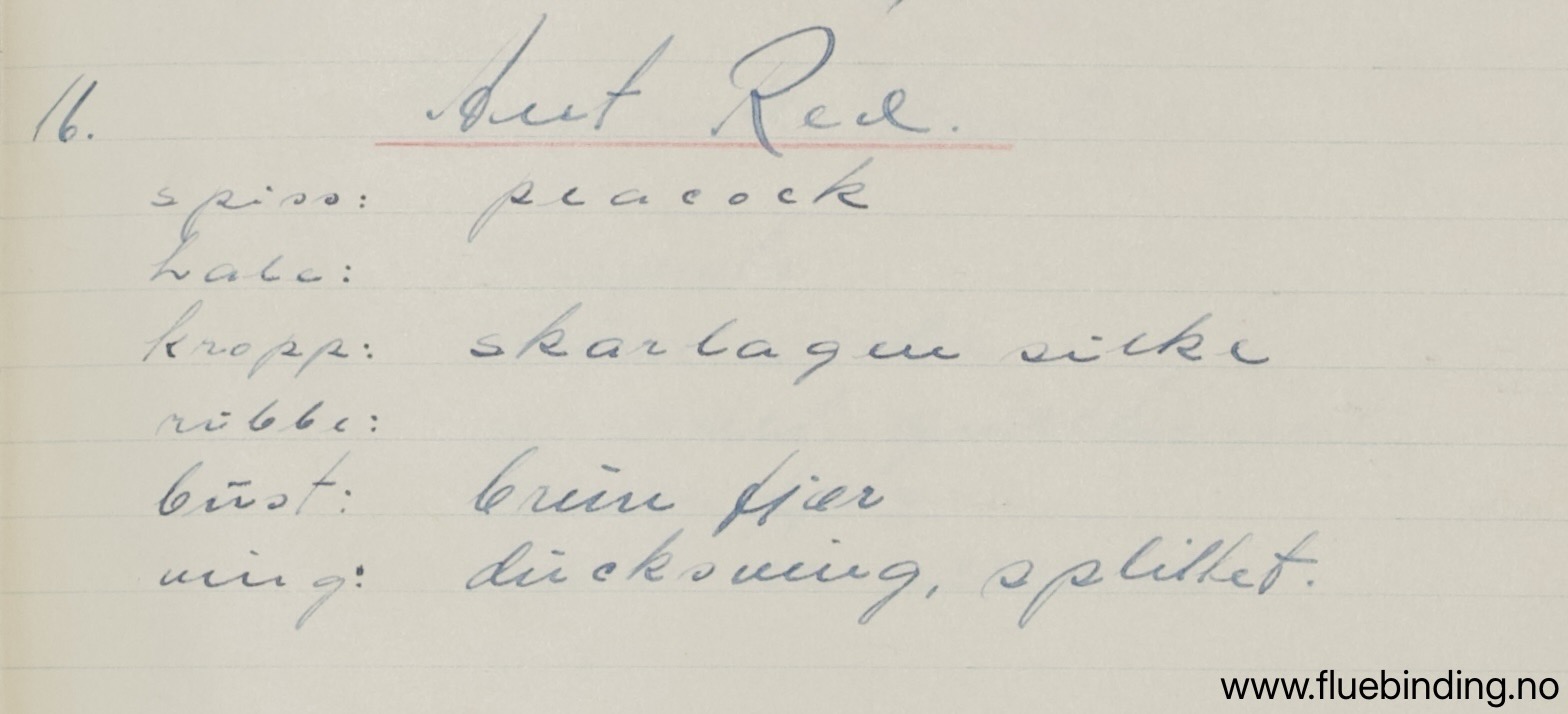 16. Ant Red.
spiss: peacock
hale:
kropp: skarlagen silke
ribbe:
büst: brün fjær
ving: dücksving, splittet.
www.fluebinding.no